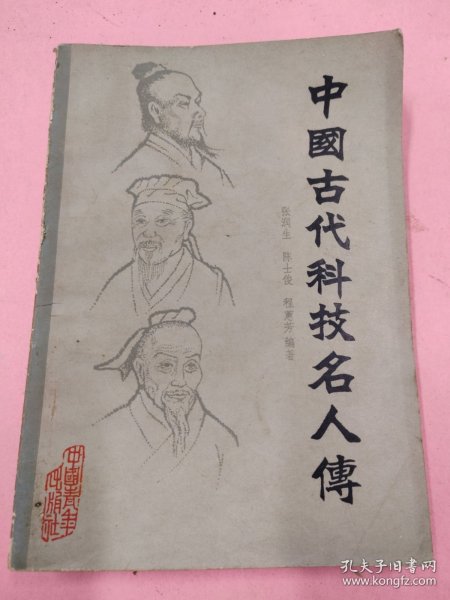 中國古代科技名人傳
张润生 陈士俊 程蕙芳 编著
中國青年
出版社
孔夫子旧书网
www.kongfz.com